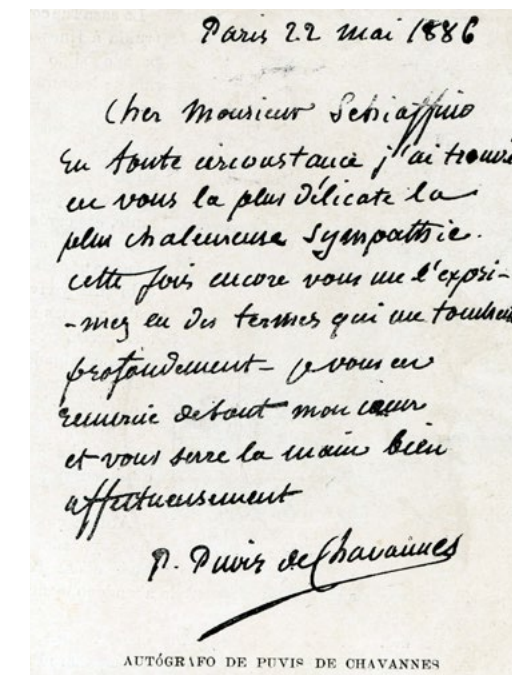 Paris 22 mai 1886
Cher Monsieur Schiaffino
En toute circonstance j'ai trouvé
en vous la plus délicate la
plus chaleureuse sympathie.
cette fois encore vous me l'expri-
-mez en des termes qui me touchent
profondement - je vous en
remercie de tout mon cœur
et vous serre la main bien
affectueusement
P. Puvis de Chavannes
AUTÓGRAFO DE PUVIS DE CHAVANNES